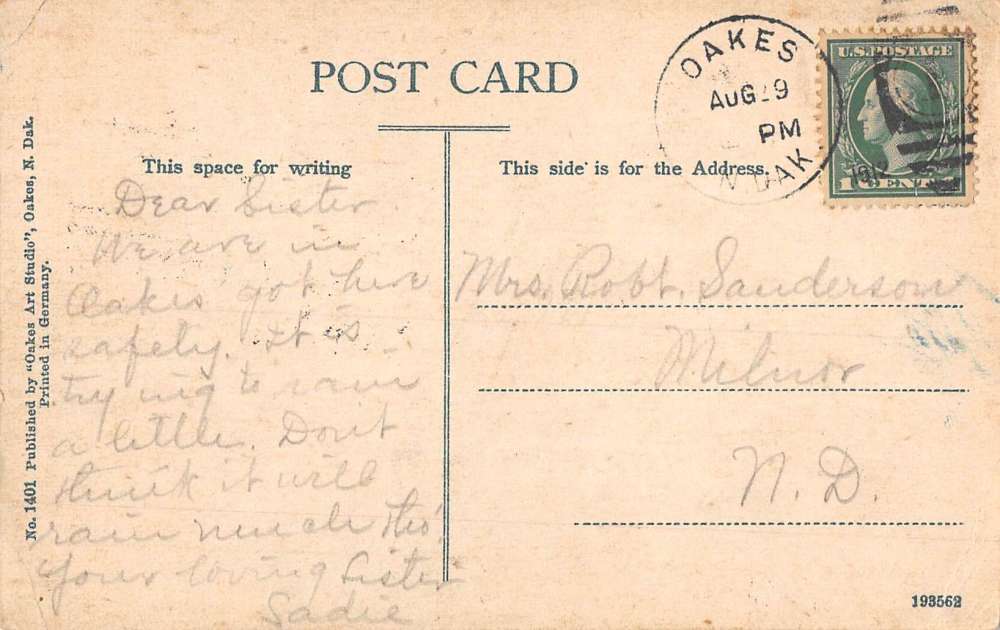 POST CARD
OAKES
AUG 9
PM
N DAK
1912
U.S. POSTAGE
1 CENT
This space for writing
This side is for the Address.
Dear Sister
We are in
Oakes got here
safely. It is
trying to rain
a little. Dont
think it will
rain much tho'.
Your loving Sister
Sadie
Mrs. Robt. Sanderson
Milnor
N. D.
No. 1401 Published by "Oakes Art Studio", Oakes, N. Dak.
Printed in Germany.
193562